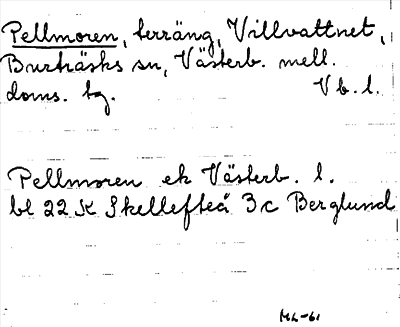 Pellmoren, terräng, Villvattnet,
Burträsks sn, Västerb. mell.
doms. tg. Vb. l.
Pellmoren ek Västerb. l.
bl 22 K Skellefteå 3c Berglund
ML-61